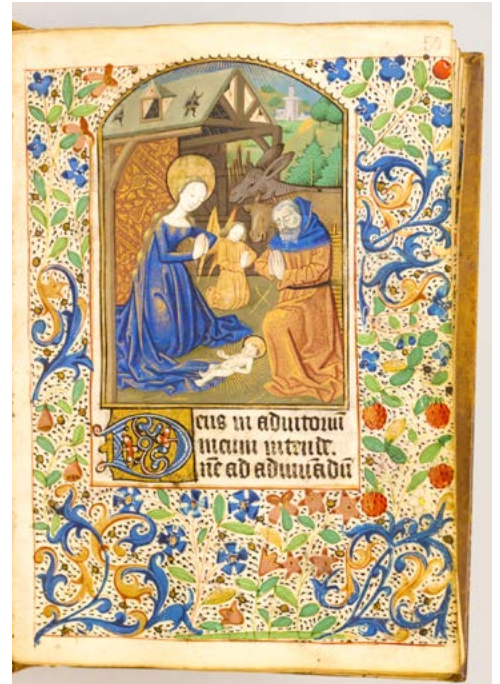 50
Deus in adiutoriū
meum intende.
Dñe ad adiuuādū